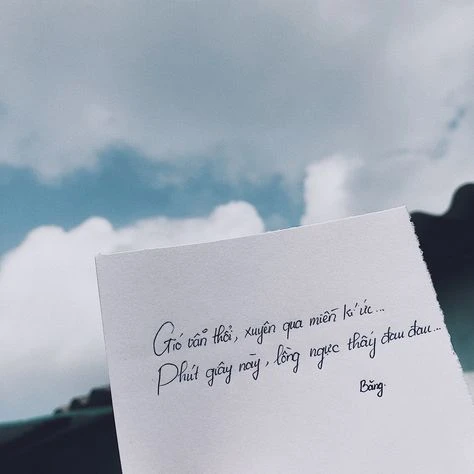 Gió vẫn thổi, xuyên qua miền kí ức...
Phút giây này, lồng ngực thấy đau đau...
Băng.